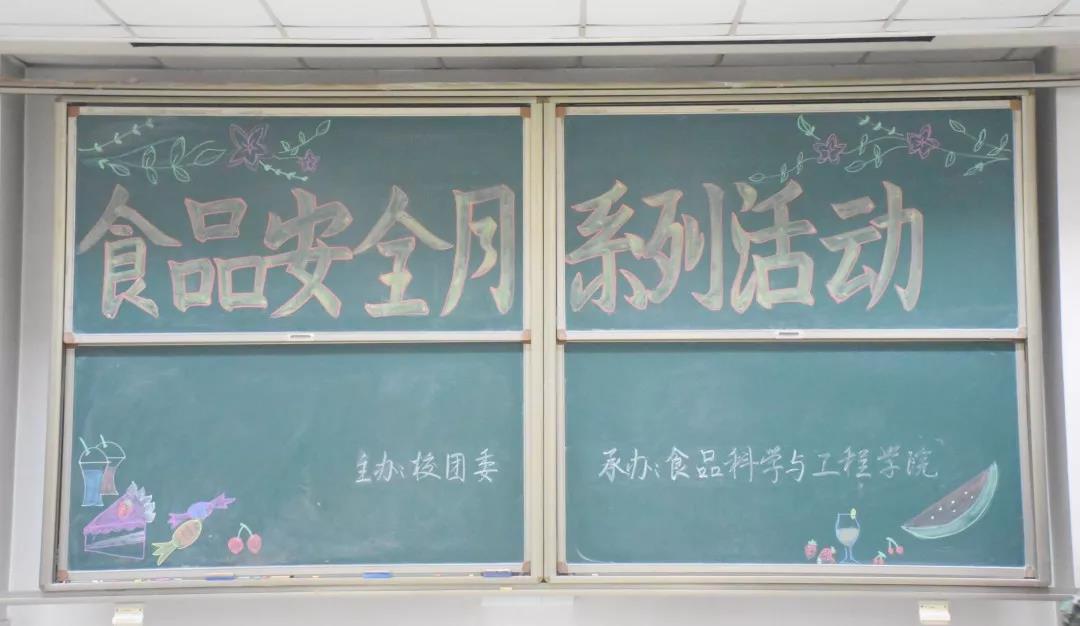 食品安全月系列活动
主办:校团委
承办:食品科学与工程学院